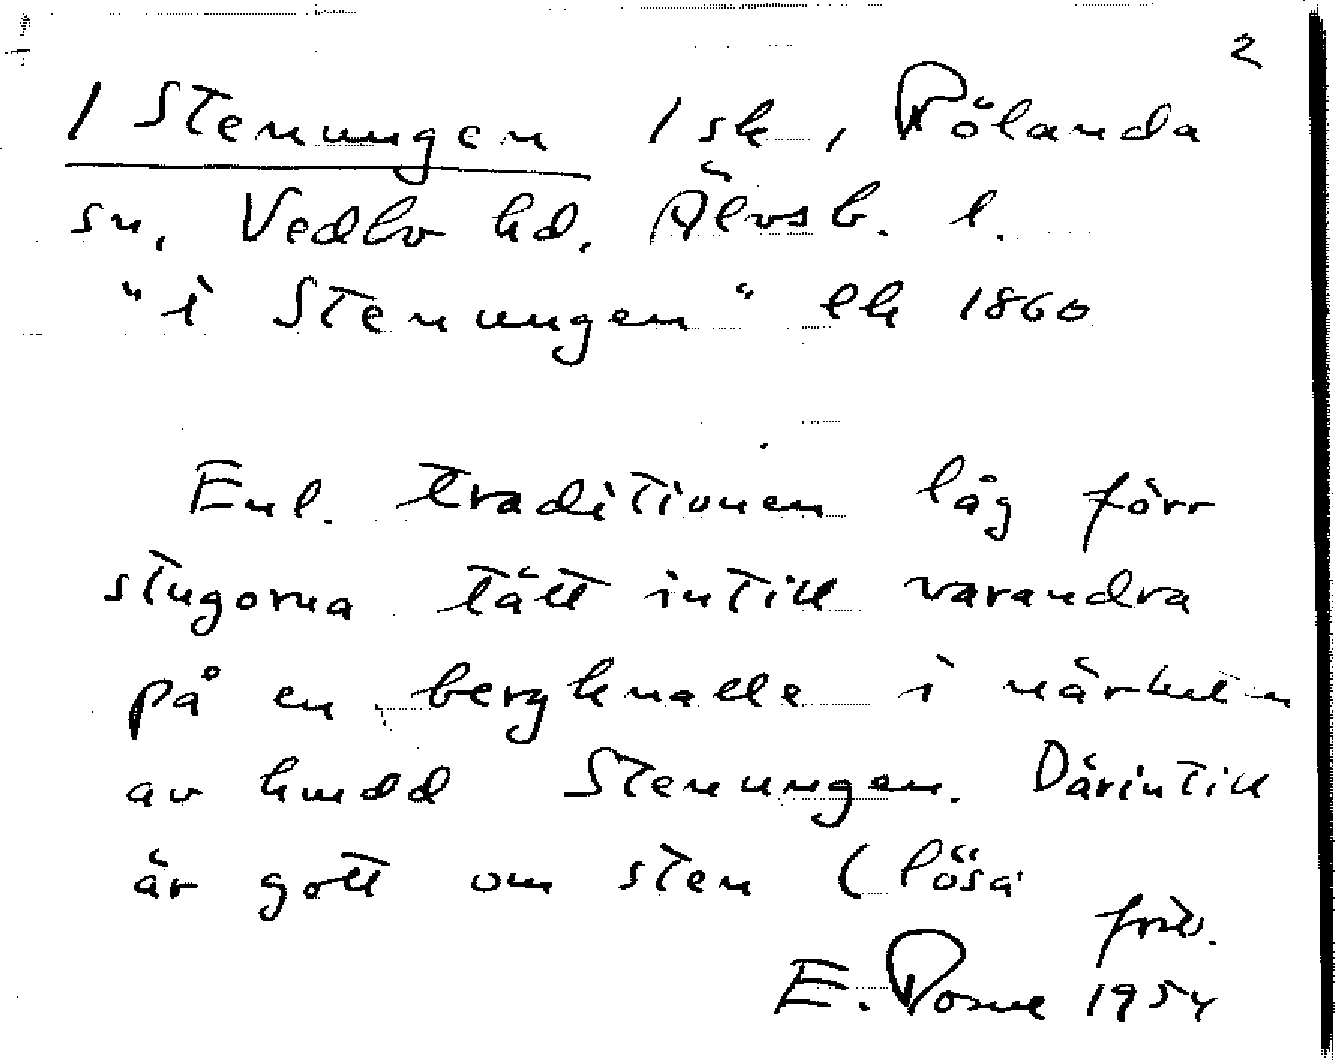 2
I Stenungen 1 sk, Rölanda
sn, Vedbo hd, Älvsb. l.
"i Stenungen" ek 1860
Enl. traditionen låg förr
stugorna tätt intill varandra
på en bergknalle i närheten
av hmdd Stenungen. Därintill
är gott om sten (lösa
E. Rosne 1954